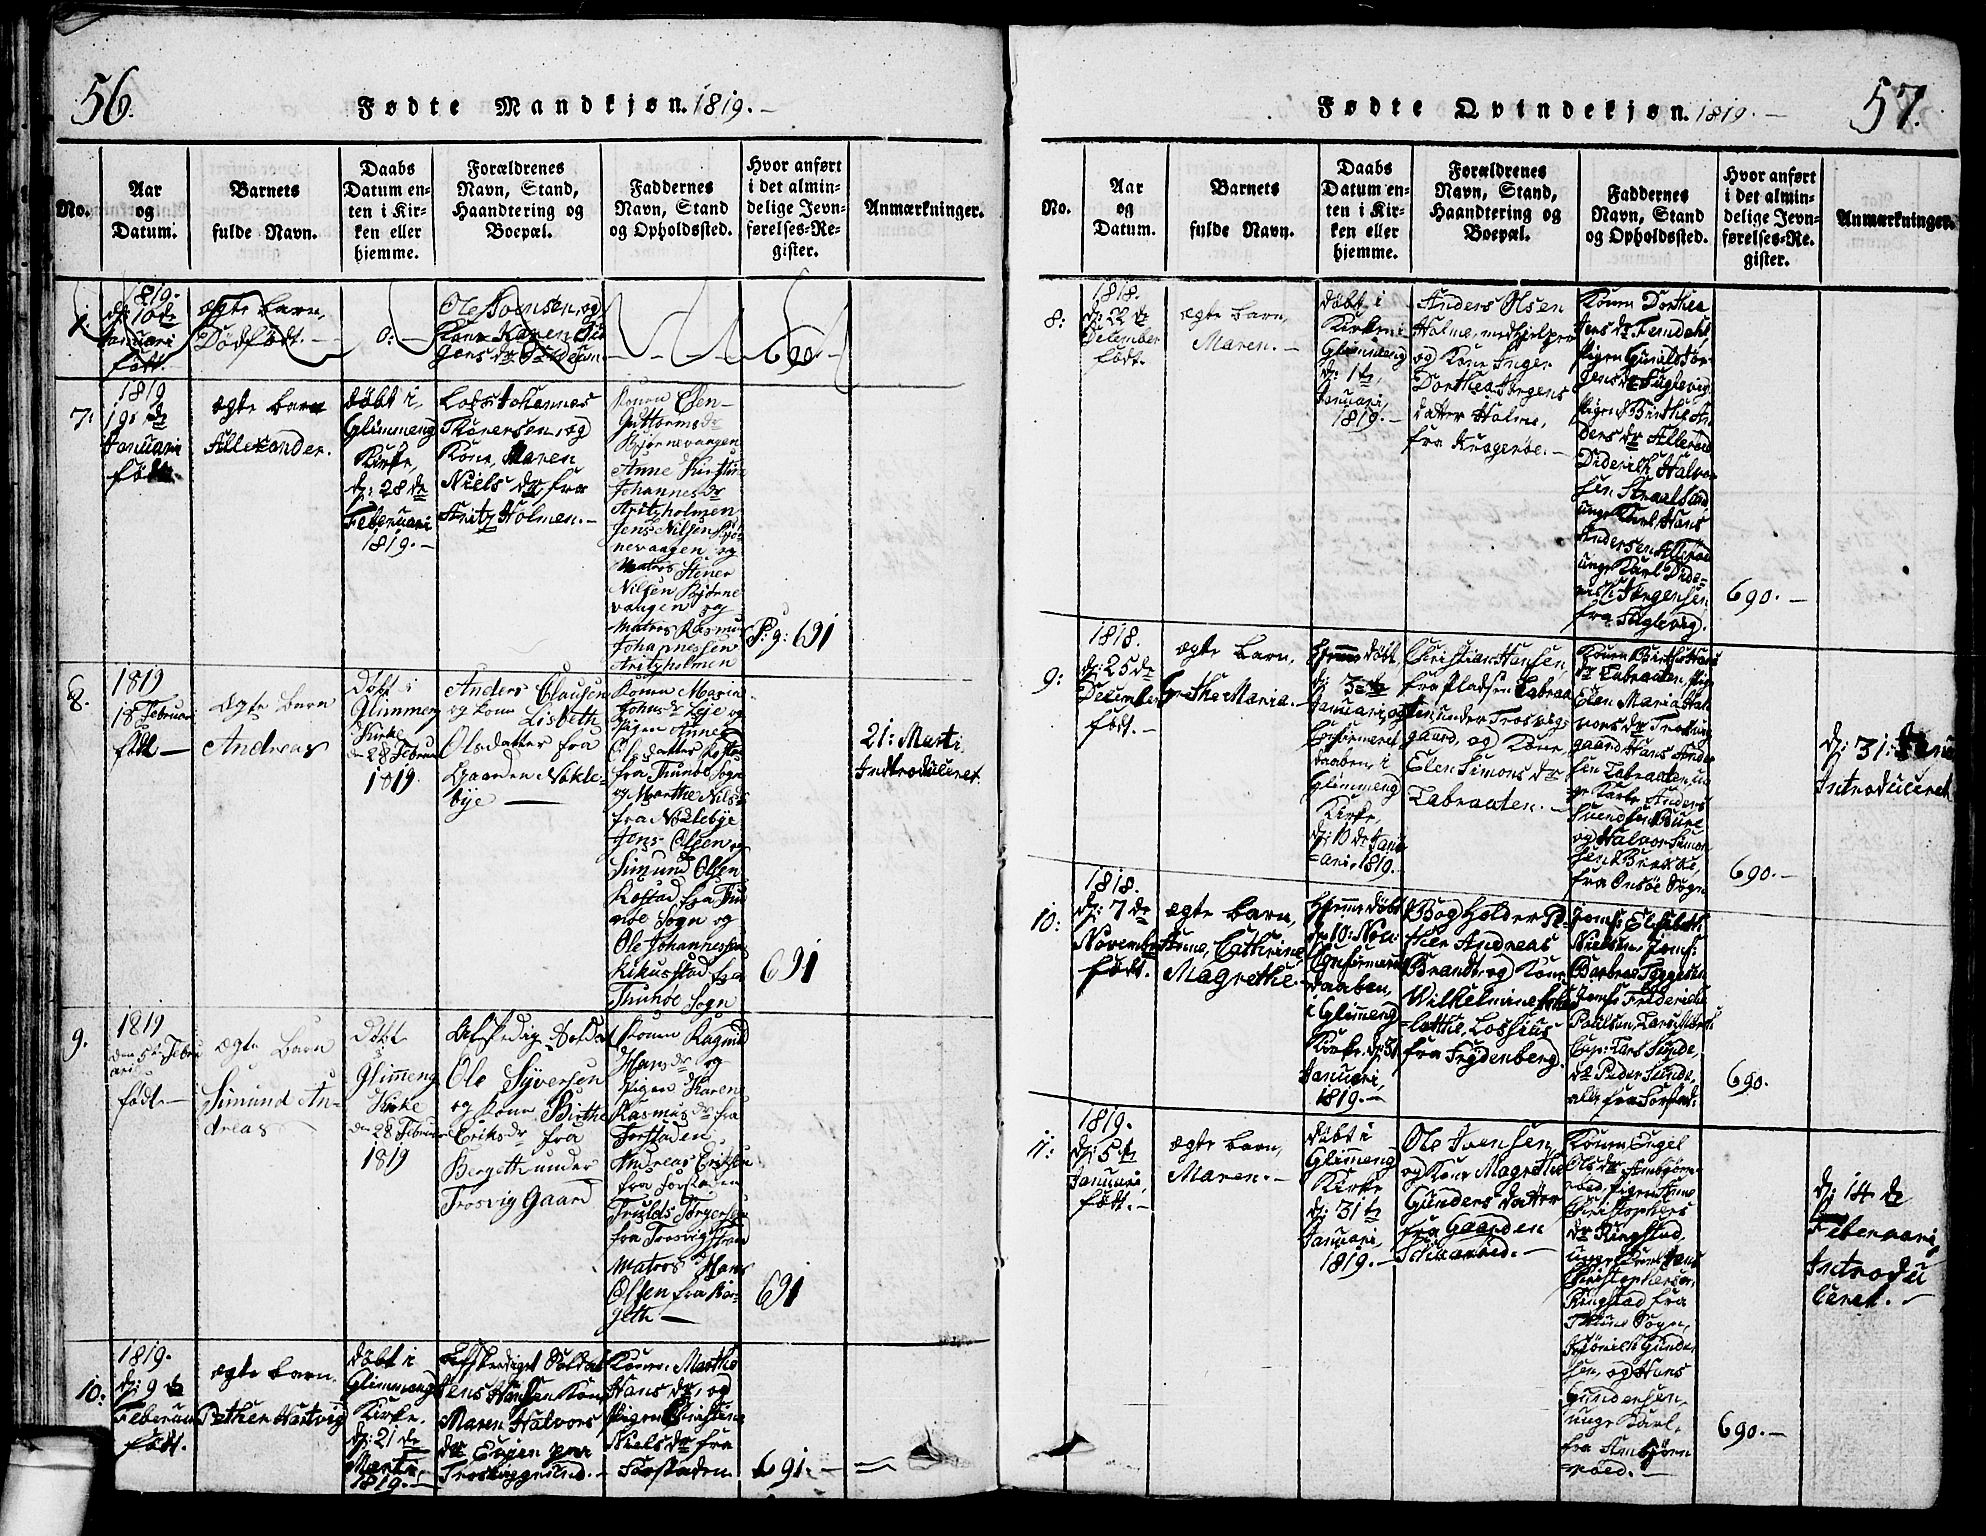 56.
Fødte Mandkjøn. 1819.-
No.
Aar
og
Datum.
Barnets
fulde Navn.
Daabs
Datum en-
ten i Kir-
ken eller
hjemme.
Forældrenes
Navn, Stand,
Haandtering og
Boepæl.
Faddernes
Navn, Stand
og Opholdssted.
Hvor anført
i det almin-
delige Jevn-
førelses-Re-
gister.
Anmærkninger.
1819.
d: 10de
Januari
født.
ægte barn,
Dødfødt.-
0:
Ole
Kone Karen
690.-
7:
1819
19: de
Januari
født.
ægte barn
Allexander.
døbt i
Glimmeng
Kirke,
d: 28 de
Februari
1819.-
Lods Johannes
Thorersen, og
Kone, Maren
Niels dr, fra
Aritz Holmen.-
Konen Elen
Guttorms dr
Bjørnevangen
Anne Kirstin
Johannes dr
Aritzholmen
Jens Nilsen Bjør
nevangen, og
Matros Stener
Nilsen Bjørne
vangen og
Matros Rasmus
Johannessen
Aritzholmen
P: 9: 691
8.
1819
18 Februar
født-
ægte barn
Andreas
Døbt i
Glimmeng
Kirke
den 28 Februar
1819.
Anders Clausen
og kone Lisbeth
Olsdatter fra
Gaarden Nøkle-
bye -
Konen Maria
Johns dr Leje og
Pigen Anne
Olsdatter
fra Thunøe Sogn
og Marthe Nilsd
fra Nøklebye
Jens Olsen og
Simund Olsen
fra Thu
nøe Sogn og
Ole Johannessen
fra
Thunøe Sogn
691
21: Marti
Indtroduceret
9.
1819
den 5te Febru
ari
født-
ægte Barn
Simund An-
dreas
Døbt
i
Glimmeng
Kirke
den 28 Februar
1819
Afskedig Soldat
Ole Syversen
og Kone Birthe
Eriks dr fra
Bergeth under
Trosvig Gaard
Konen Ragnild
Hans dr og
Pigen Karen
Rasmus dr fra
Forstaden
Andreas Eriksen
fra Forstaden
Jørgensen
fra Trosvig
Matros Hans
Olsen fra Bær-
geth-
691
10:
1819.
d: 9 de
Februari
født.
ægte barn.
Pether Hartvig
døbt i
Glimmeng
Kirke.
d: 21 de
Marti,
1819.-
Afskediget Soldat
Jens Hansen Kone
Maren Halvors
dr Eyen paa
Konen Marthe
Hans dr, og
Pigen Kirstine
Niels dr fra
Forstaden
691.-
57.
Fødte Qvindekjøn. 1819.-
No.
Aar
og
Datum.
Barnets
fulde Navn.
Daabs
Datum en-
ten i Kir-
ken eller
hjemme.
Forældrenes
Navn, Stand,
Haandtering og
Boepæl.
Faddernes
Navn, Stand
og Opholdssted.
Hvor anført
i det almin-
delige Jevn-
førelses-Re-
gister.
Anmærkninger.
8:
1818.
d: 22 de
December
født.
ægte barn,
Maren.-
døbt i
Kirken i
Glimmeng
d: 1te,
Januari,
1819.-
Anders Olsen
Holme, medhjelper
og Kone Inger
Dorthea Jørgens
datter Holme,
fra Kragerøe.-
Konen Dorthea
Jens dr
Pigen Gunild Jør
gens dr Fuglevig
Pigen Birthe An
ders dr Allerød
Diderich Halvor
sen
unge Karl Hans
Andersen Allerød
unge Karl Dide-
rich Jørgensen
fra Fuglevig.
690.-
9:
1818.
d: 25 de
December
født.-
ægte barn,
Grethe Maria.-
Hjemme døbt,
d: 3 de
Januari, og
Confirmeret
daaben, i
Glimmeng
Kirke,
d: 10 de Janu
ari. 1819.
Christian Hansen,
fra Pladsen Labraa
ten under Trosvig
gaard, og Kone,
Elen Simons dr
Labraaten.-
Konen Birthe Hans
dr Labraaten, Pig:
Elen Maria Hal
vors dr Trosvig
gaard Hans Ander
sen Labraaten, un
ge Karle Anders
Svendsen
og Halvor Simon
sen
fra Onsøe Sogn
690.-
d: 31: Janu
Introduceret
10:
1818.
d: 7 de
November
født.
ægte barn,
Anne, Cathrine,
Magrethe.-
Hjemme døbt
d: 10: Nov:
Confirmeret
daaben,
i Glimmeng
Kirke. d: 31
Januari,
1819.-
Bog Holder Pe-
ther Andreas
Brandt og Kone
Wilhelmine
Lossius
fra Frydenberg.
Jomf: Elisabeth
Nielsen, Jomf:
Barbra
Jomf: Friderich
Poulsen,
Cap: Lars Sunde,
Peder Sunde,
alle fra Forstad:
690.
11:
1819.
d: 5 te
Januari,
født.-
ægte barn,
Maren.-
døbt i
Glimmeng
Kirke
d: 31 te
Januari,
1819.-
Ole Ivensen,
og Kone Magrethe
Gunders datter
fra Gaarden
Konen Engel
Ols dr Ambjørn
røed. Pigen Anne
Christophers
dr Ringstad,
unge Karl Jens
Christophersen
Ringstad fra
Thune Sogn,
Gunder
sen, og Hans
Gundersen,
unge Karl,
fra Ambjørn
røed.-
690.-
d: 14 de
Feberuari,
Introdu
ceret.-